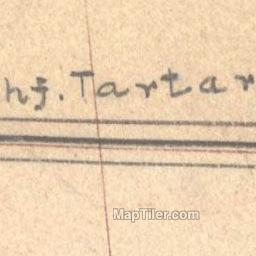 hj. Tartar
MapTiler.com